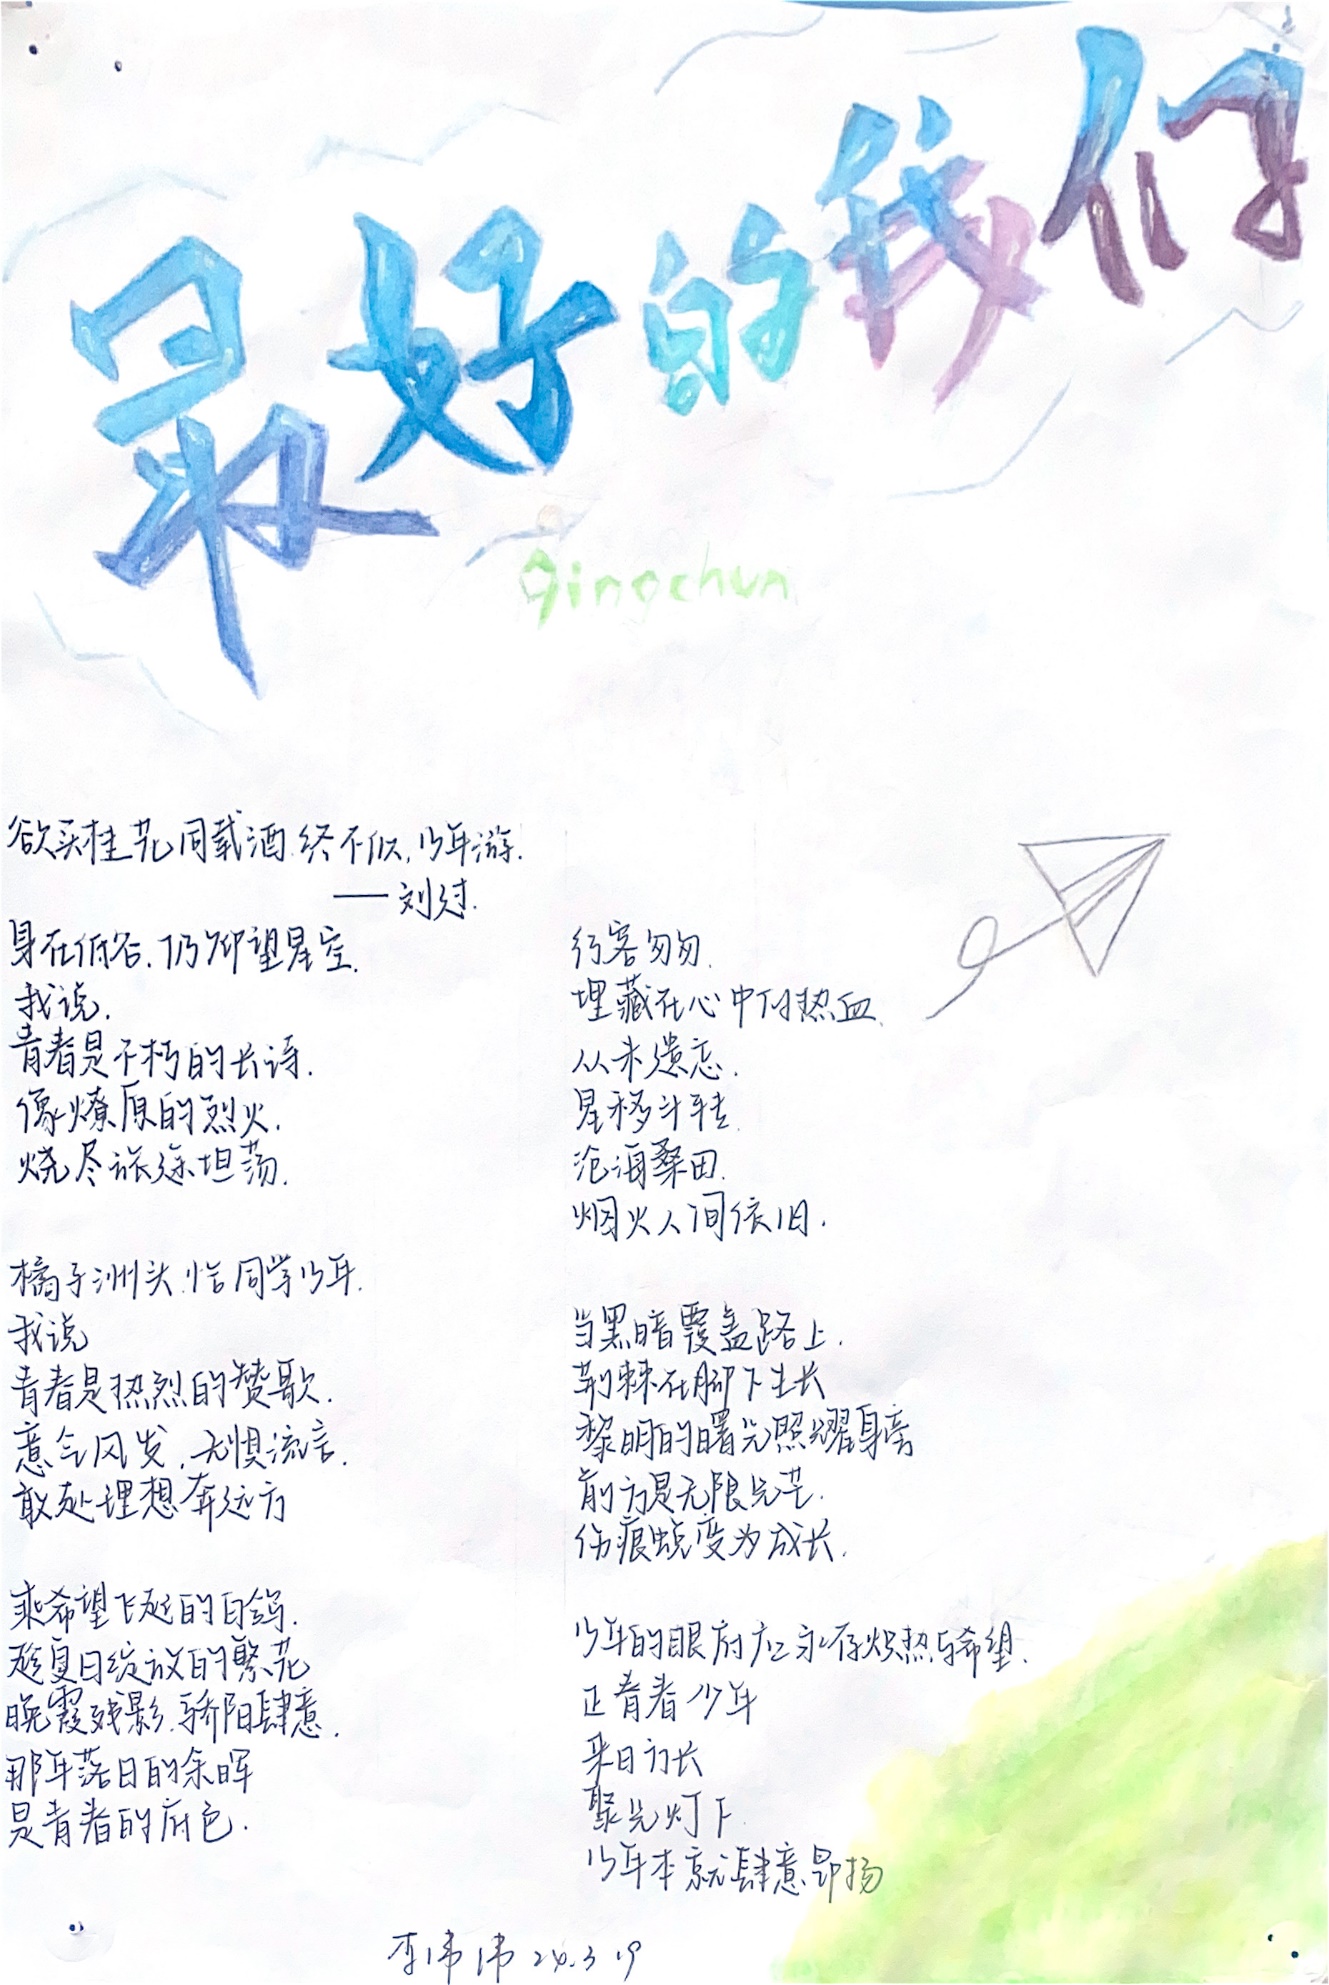 最好的我们
qingchun
欲买桂花同载酒.终不似,少年游.
——刘过.
身在低谷.仍仰望星空.
我说.
青春是不朽的长诗.
像燎原的烈火.
烧尽旅途坦荡.
橘子洲头.恰同学少年.
我说
青春是热烈的赞歌.
意气风发,无惧流言.
敢赴理想奔远方
乘希望飞起的白鸽.
趁夏日绽放的繁花
晚霞残影.骄阳肆意.
那年落日的余晖
是青春的底色.
行客匆匆.
埋藏在心中的热血.
从未遗忘.
星移斗转.
沧海桑田.
烟火人间依旧.
当黑暗覆盖路上.
荆棘在脚下生长
黎明的曙光照耀身旁
前方是无限光芒.
伤痕蜕变为成长.
少年的眼底应永存炽热与希望.
正青春少年
来日方长
聚光灯下.
少年本就肆意昂扬
李沛沛 24.3.19